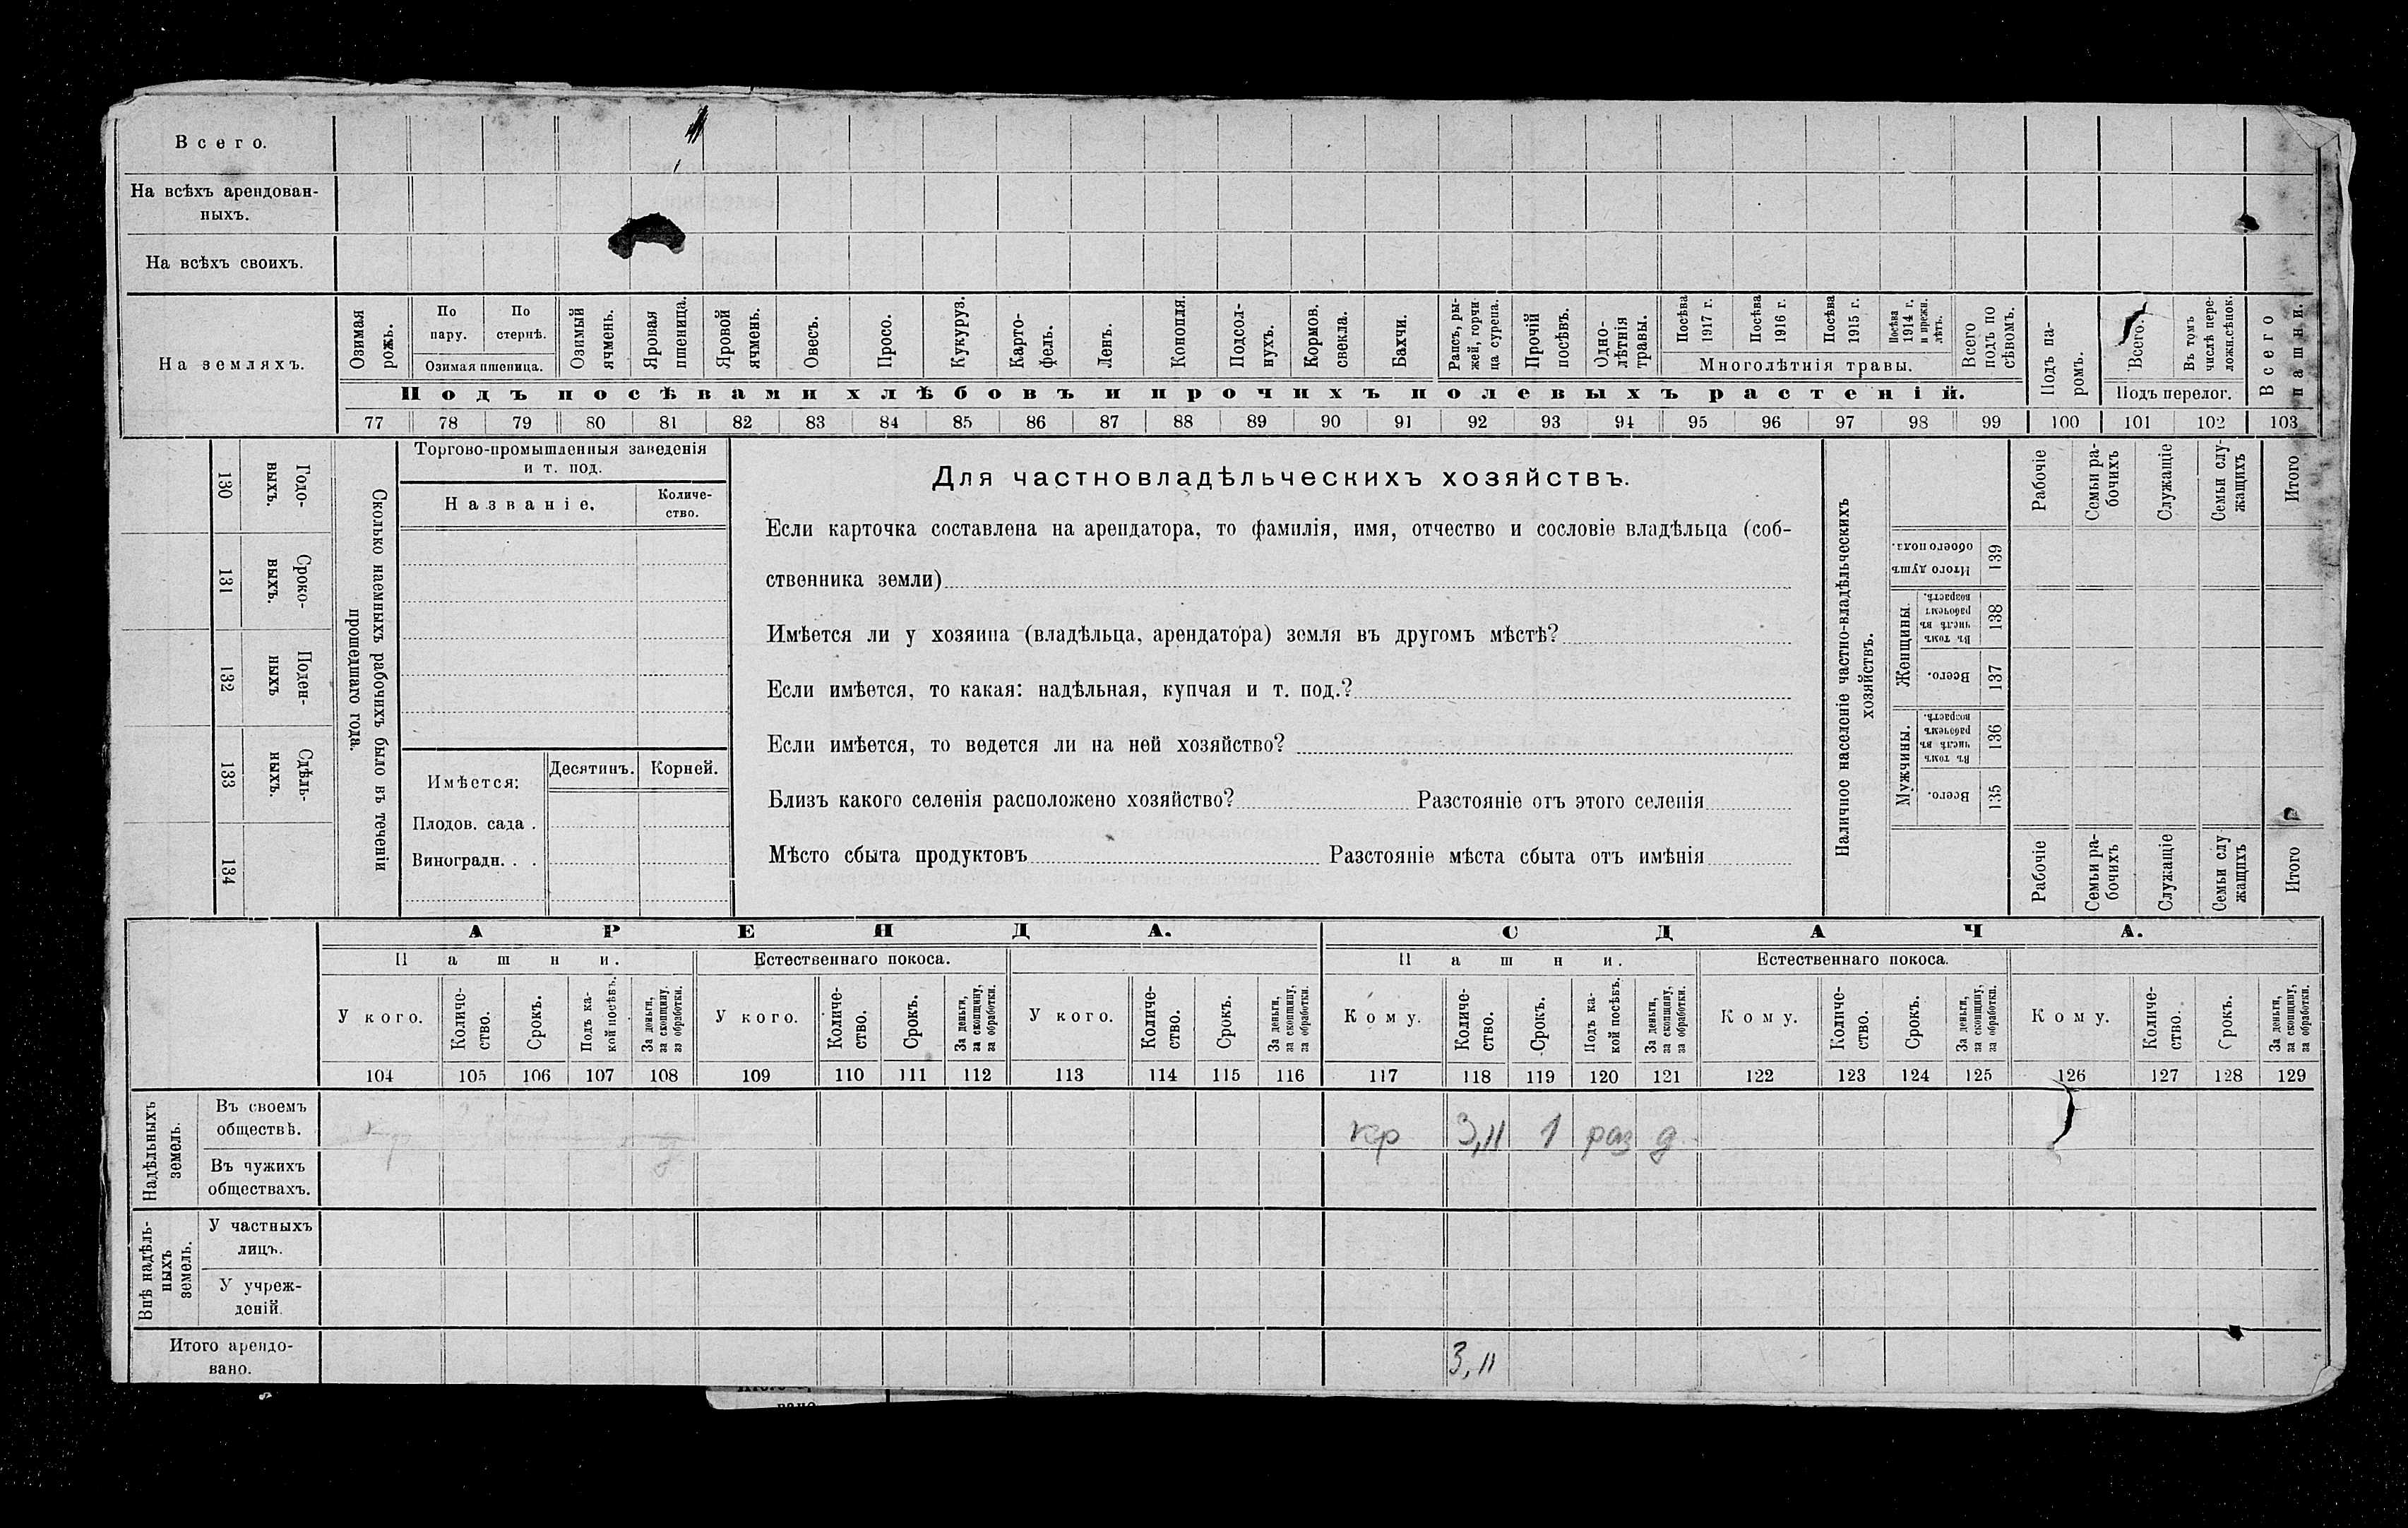 Всего.
На всѣхъ арендован-
ныхъ.
На всѣхъ своихъ.
На земляхъ.
Озимая рожь.
По пару.
По стернѣ.
Озимая пшеница.
Озимый ячмень.
Яровая пшеница.
Яровой ячмень.
Овесъ.
Просо.
Кукуруз.
Карто-
фель.
Ленъ.
Конопля.
Подсол-
нухъ.
Кормов.
свекла.
Бахчи.
Рапсъ, ры-
жей, горчи
ца сурепа.
Прочій посѣвъ.
Одно-
лѣтнія
травы.
Посѣва 1917 г.
Посѣва 1916 г.
Посѣва 1915 г.
Посѣва 1914 г. и прежн. лѣтъ.
Многолѣтнія травы.
Всего подъ по
сѣвомъ.
Подъ па-
ромъ.
Всего.
Въ томъ числѣ пере-
ложн.сѣнок.
Подъ перелог.
Всего пашни.
Подъ посѣвами хлѣбовъ и прочихъ полевыхъ растеній.
77 78 79 80 81 82 83 84 85 86 87 88 89 90 91 92 93 94 95 96 97 98 99 100 101 102 103
130 Годо-
выхъ.
131 Сроко-
выхъ.
132 Поден-
ныхъ
133 Сдѣль-
ныхъ.
134
Сколько наемныхъ рабочихъ было въ теченіи
прошедшаго года.
Торгово-промышленныя заведенія
и т. под.
Названіе.
Количе-
ство.
Имѣется:
Десятинъ.
Корней.
Плодов. сада .
Виноградн. . .
Для частновладѣльческихъ хозяйствъ.
Если карточка составлена на арендатора, то фамилія, имя, отчество и сословіе владѣльца (соб-
ственника земли)
Имѣется ли у хозяина (владѣльца, арендатора) земля въ другомъ мѣстѣ?
Если имѣется, то какая: надѣльная, купчая и т. под.?
Если имѣется, то ведется ли на ней хозяйство?
Близъ какого селенія расположено хозяйство? Разстояніе отъ этого селенія
Мѣсто сбыта продуктовъ Разстояніе мѣста сбыта отъ имѣнія
Наличное населеніе частно-владѣльческихъ
хозяйствъ.
Рабочіе
Семьи ра-
бочихъ
Служащіе
Семьи слу-
жащихъ
Итого
Итого душъ обоего пола.
139
Женщины.
Въ томъ числѣ въ рабочемъ возрастѣ.
138
Всего.
137
Мужчины.
Въ томъ числѣ въ рабочемъ возрастѣ.
136
Всего.
135
Рабочіе
Семьи ра-
бочихъ
Служащіе
Семьи слу
жащихъ
Итого
АРЕНДА.
СДАЧА.
Пашни.
Естественнаго покоса.
Пашни.
Естественнаго покоса.
У кого.
Количе-
ство.
Срокъ.
Подъ ка-
кой посѣвъ.
За деньги,
за скопщину,
за обработки.
У кого.
Количе-
ство.
Срокъ.
За деньги,
за скопщину,
за обработки.
У кого.
Количе-
ство.
Срокъ.
За деньги,
за скопщину,
за обработки.
Кому.
Количе-
ство.
Срокъ.
Подъ ка-
кой посѣвъ.
За деньги,
за скопщину,
за обработки.
Кому.
Количе-
ство.
Срокъ.
За деньги,
за скопщину,
за обработки.
Кому.
Количе-
ство.
Срокъ.
За деньги,
за скопщину,
за обработки.
104 105 106 107 108 109 110 111 112 113 114 115 116 117 118 119 120 121 122 123 124 125 126 127 128 129
Надѣльныхъ
земель.
Въ своемъ
обществѣ.
кр 3,11 1 раз д.
Въ чужихъ
обществахъ.
Внѣ надѣль-
ныхъ
земель.
У частныхъ
лицъ.
У учреж-
деній.
Итого арендо-
вано.
3,11